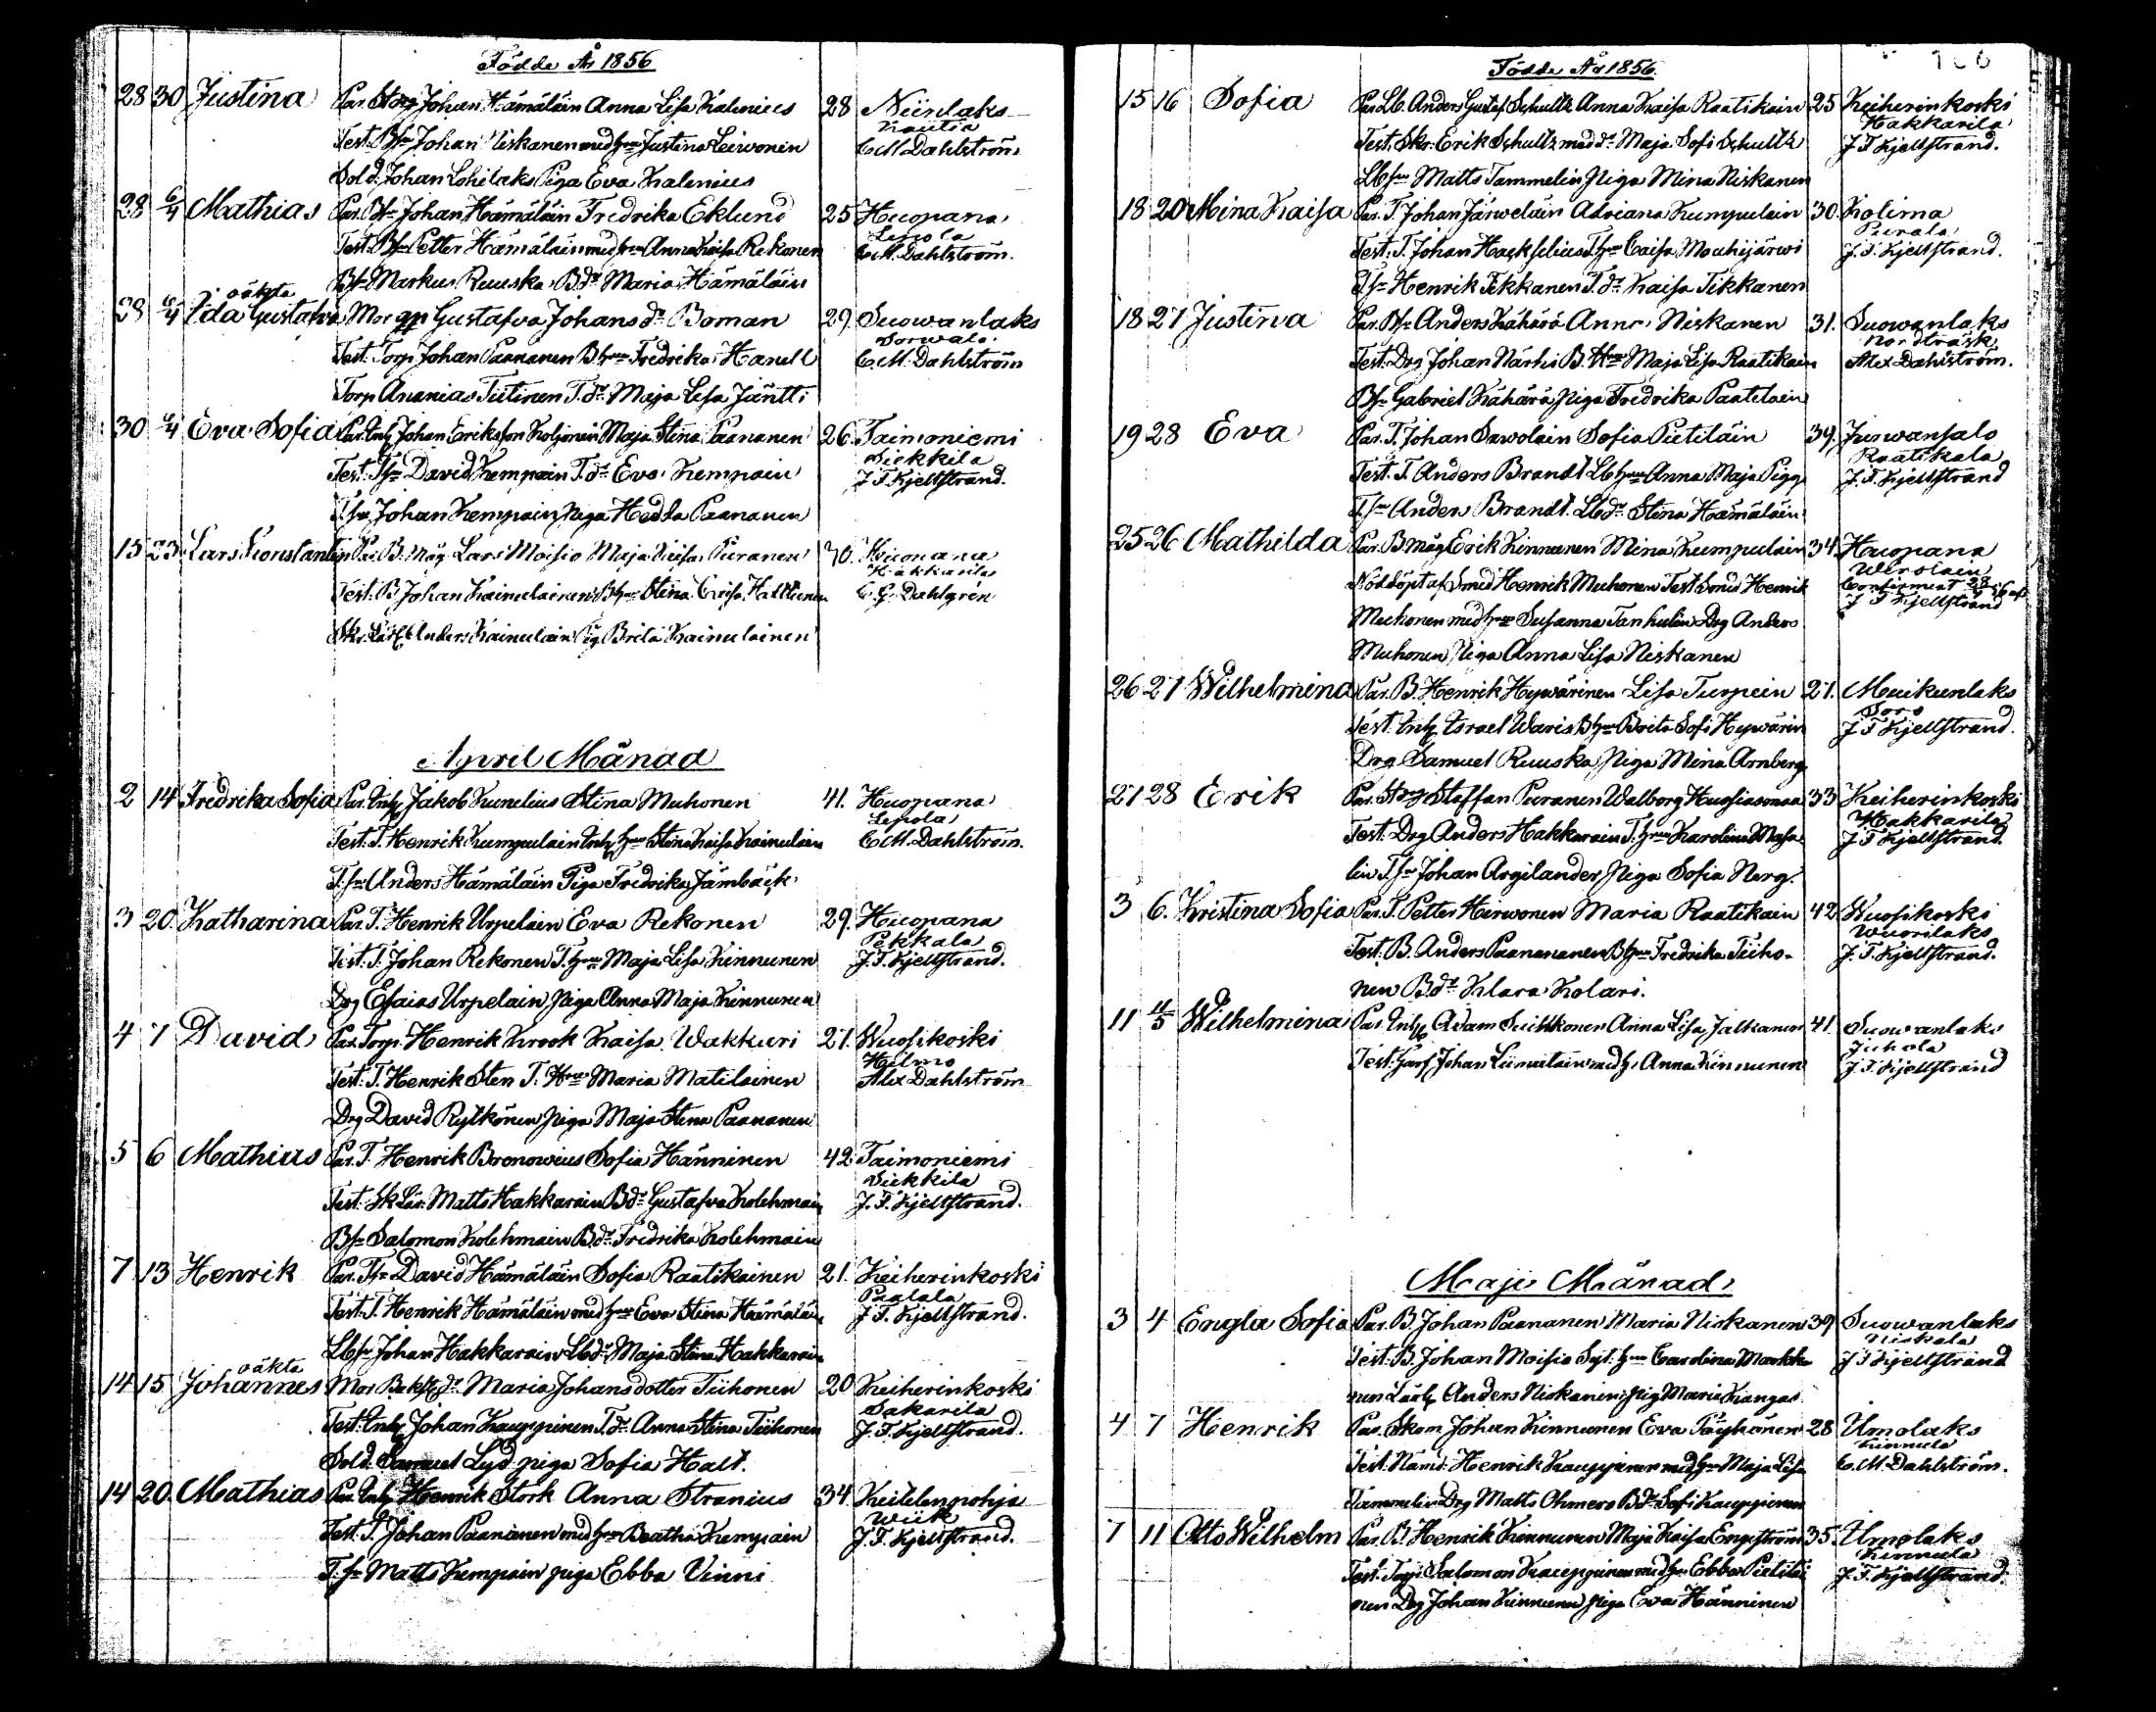 Födde År 1856
28 30 Justina Par. Storp Johan Hämäläin Anna Lisa Kalenius 28 Niinlaks
Kautia
Test. Bsn Johan Niskanen med hru Justina Leiwonen C M Dahlström
Sold. Johan Lohilaks Piga Eva Kalenius
28 6/4 Mathias Par. Bsn Johan Hämäläin Fredrika Eklund 25 Huopana
Lepola
Test. Bsn Petter Hämäläin med hru Anna Kaisa Rekonen C.M. Dahlström.
Bsn Markus Ruuska Bdr Maria Hämäläin
oäkta
28 6/4 Ida Gustafva Mor Gustafva Johans dr Boman 29. Suowanlaks
Sorwala
Test. Torp Johan Paananen B hru Fredrika Hanell C.M. Dahlström
Torp Ananias Tiitinen T. dr Maja Lisa Jäntti
30 6/4 Eva Sofia Par. Inh Johan Eriksson Koljonen Maja Stina Paananen 26. Taimoniemi
Siekkila
Test. Tsn David Kempain T. dr Eva Kempain J T Kjellstrand.
T. sn Johan Kempain piga Hedda Paananen
15 23 Lars Konstantin Par. B. Måg Lars Moisio Maja Kaisa Puranen 30. Huopana
Hakkarila
Test. B Johan Kainulainen B hru Stina Caisa Hakkunen C. G. Dahlgrén
Anders Kainulain Pig Brita Kainulainen
April Månad
2 14 Fredrika Sofia Par. Inh Jakob Kunelius Stina Muhonen 41. Huopana
Lepola
Test. T. Henrik Kumpulain Inh hru Stina Kaisa Kainulain C.M. Dahlström.
T. sn Anders Hämäläin Piga Fredrika Jämbäck
3 20. Katharina Par. T. Henrik Urpelain Eva Rekonen 29. Huopana
Pekkala
Test. T. Johan Rekonen T. hru Maja Lisa Kinnunen J. T. Kjellstrand.
Drg Esaias Urpelain piga Anna Maja Kinnunen
4 7 David Par. Torp Henrik Krook Kaisa Wakkuri 27. Wuosikoski
Hilmo
Test. T. Henrik Sten T. Hru Maria Matilainen Alex Dahlström
Drg David Rytkönen piga Maja Stina Paananen
5 6 Mathias Par. T. Henrik Bronowius Sofia Hänninen 42 Taimoniemi
Siekkila
Test. Sk Lär. Matts Hakkarain B dr Gustafva Kolehmain J. T. Kjellstrand.
Bsn Salomon Kolehmain B. dr Fredrika Kolehmain
7 13 Henrik Par. Tsn David Hämäläin Sofia Raatikainen 21. Keiherinkoski
Paalala
Test. T. Henrik Hämäläin med hru Eva Stina Hämäläin J T. Kjellstrand.
Lbsn Johan Hakkarain Lbdr Maja Stina Hakkarain
oäkta
14 15 Johannes Mor Maria Johansdotter Tiihonen 20 Keiherinkoski
Sakarila
Test. Inh Johan Kauppinen T. dr Anna Stina Tiihonen J. T. Kjellstrand.
Sold. Samuel Lyd piga Sofia Halt.
14 20. Mathias Par. Inh Henrik Stork Anna Stranius 34. Keitelenpohja
Wiik
Test. T. Johan Paananen med hru Beatha Kempain J. T. Kjellstrand.
T. sn Matts Kempain piga Ebba Vinni
Födde År 1856.
15 16 Sofia Par Lb. Anders Gustaf Schultz Anna Kaisa Raatikain 25 Keiherinkoski
Hakkarila
Test. Skr. Erik Schultz med dr Maja Sofi Schultz J T Kjellstrand.
Lbsn Matts Tammelin Piga Mina Niskanen
18 20 Mina Kaisa Par. T. Johan Järweläin Adriana Kumpulain 30. Kolima
Purala
Test. T. Johan Hackselius T hru Caisa Mouhijärwi J. T. Kjellstrand.
Tsn Henrik Tikkanen T. dr Kaisa Tikkanen
18 27 Justina Par. Bsn Anders Kähärä Anna Niskanen 31. Suowanlaks
Nordträsk
Test. Drg Johan Närhi B. Hru Maja Lisa Raatikain Alex Dahlström.
Bsn Gabriel Kähärä piga Fredrika Paatelain
19 28 Eva Par. T. Johan Sawolain Sofia Pietiläin 39. Juswansalo
Raatikala
Test. T. Anders Brandt Lb hru Anna Maja Pigg J. T. Kjellstrand
T. sn Anders Brandt. Lbdr Stina Hämäläin
25 26 Mathilda Par. B måg Erik Kinnunen Mina Kumpulain 34. Huopana
Wirolain
Nöddöpt af Smed Henrik Muhonen Test. Smed Henrik Confirmerat 28/4 56 af
Muhonen med hru Susanna Tanhulin Drg Anders J T Kjellstrand
Muhonen Piga Anna Lisa Niskanen
26 27 Wilhelmina Par. B. Henrik Hywärinen Lisa Turpein 27. Muikunlaks
Soro
Test. Inh Israel Waris B hru Brita Sofi Hywärin J T Kjellstrand.
Drg Samuel Ruuska Piga Mina Arnberg
27 28 Erik Par. Storp Staffan Puranen Walborg Huosiasmaa 33 Keiherinkoski
Hakkarila
Test. Drg Anders Hakkarain T. hru Karolina Masa J T Kjellstrand.
lin T sn Johan Argilander piga Sofia Nerg.
3 6. Kristina Sofia Par. T. Petter Hirwonen Maria Raatikain 42 Wuosikoski
Wuorilaks
Test. B. Anders Paananen B hru Fredrika Tiiho- J. T. Kjellstrand.
nen B. dr Klara Kolari.
11 4/5 Wilhelmina Par. Inh Adam Suikkonen Anna Lisa Jalkanen 41. Suowanlaks
Juhola
Test. Johan Liimatain med h. Anna Kinnunen J T. Kjellstrand
Maji Månad
3 4 Engla Sofia Par. B. Johan Paananen Maria Niskanen 39 Suowanlaks
Niskala
Test. B. Johan Moisio Sgt. hru Carolina Markka J T Kjellstrand
nen Anders Niskanen Pig Maria Kangas
4 7 Henrik Par. Skom Johan Kinnunen Eva Pöyhönen 28 Umolaks
Kinnula
Test. Nämd. Henrik Kauppinen med hru Maja Lisa C. M. Dahlström.
Tammelin Drg Matts Ohmero B dr Sofi Kauppinen
7 11 Otto Wilhelm Par. B. Henrik Kinnunen Maja Kaisa Engström 35. Umolaks
Kinnula
Test. Torp Salomon Kauppinen med hru Ebba Pietiläi J. T. Kjellstrand.
nen Drg Johan Kinnunen piga Eva Hänninen